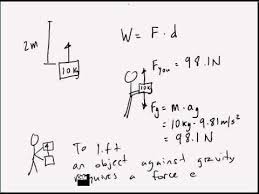 2m
10K
W = F · d
F you = 98.1N
10K
Fg = m · ag
= 10kg · 9.81 m/s²
= 98.1N
To lift
an object against gravity
a force e